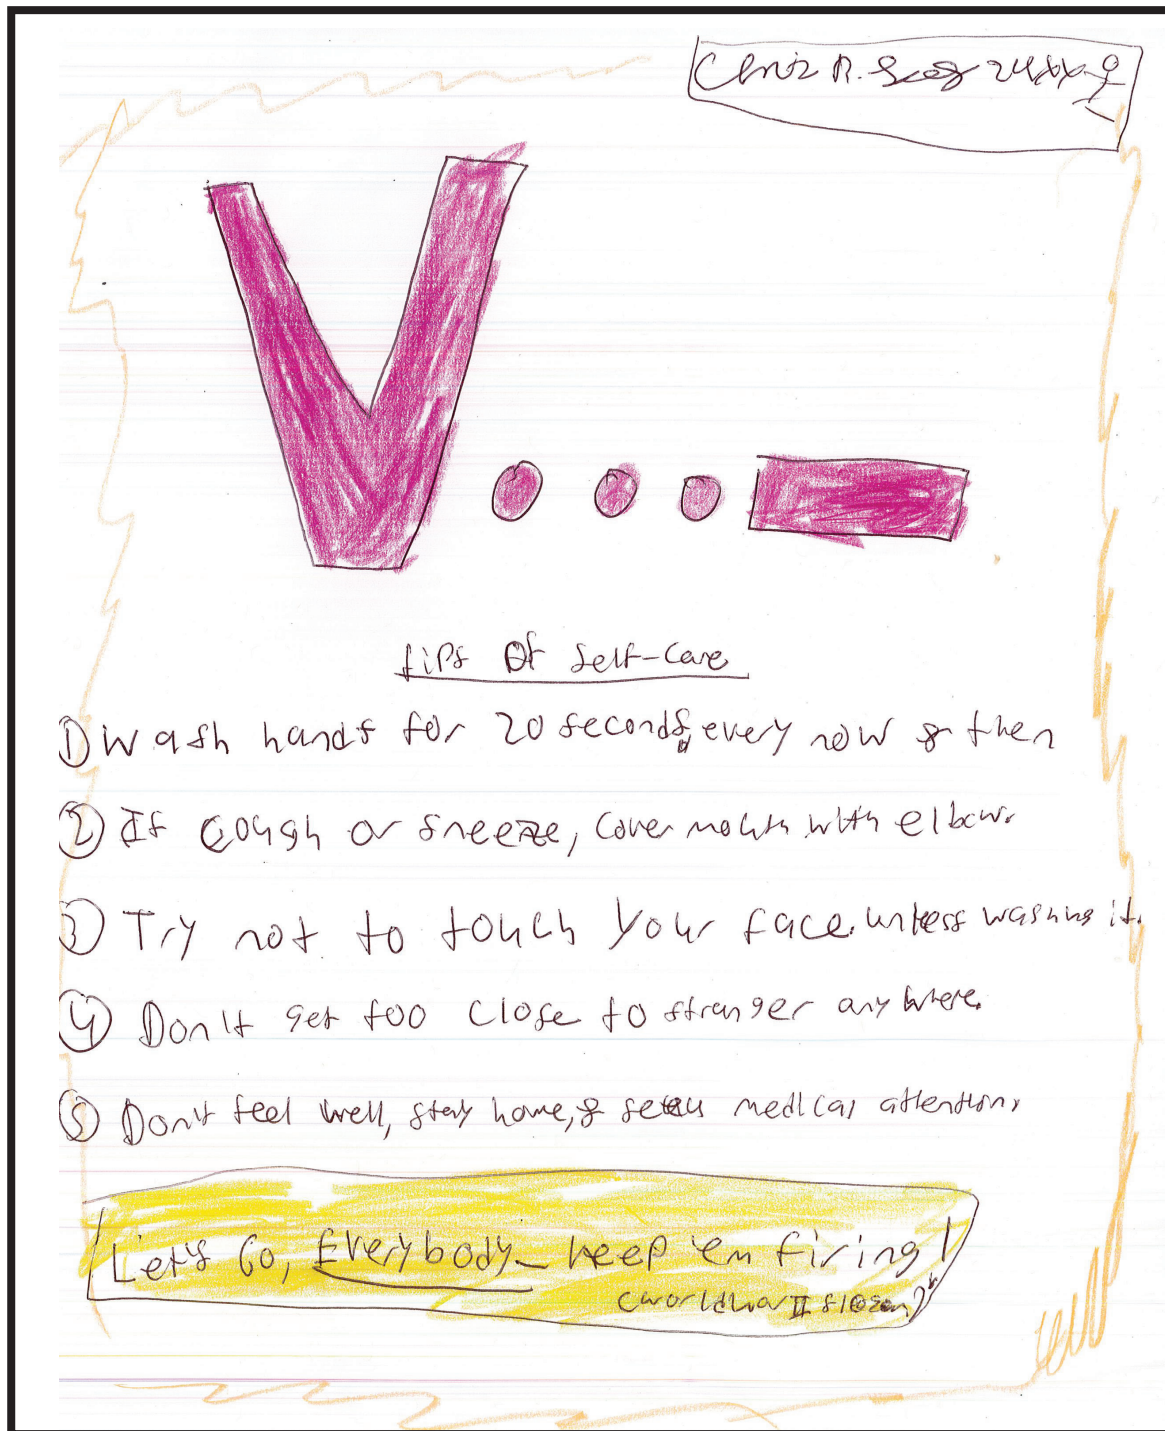 V...—
tips of self-care
① Wash hands for 20 seconds, every now & then
② If cough or sneeze, cover mouth with elbow.
③ Try not to touch your face unless washing it.
④ Don't get too close to stranger anywhere.
⑤ Don't feel well, stay home, & medical attention.
Let's Go, Everybody - keep 'em firing!
(World War II slogan)